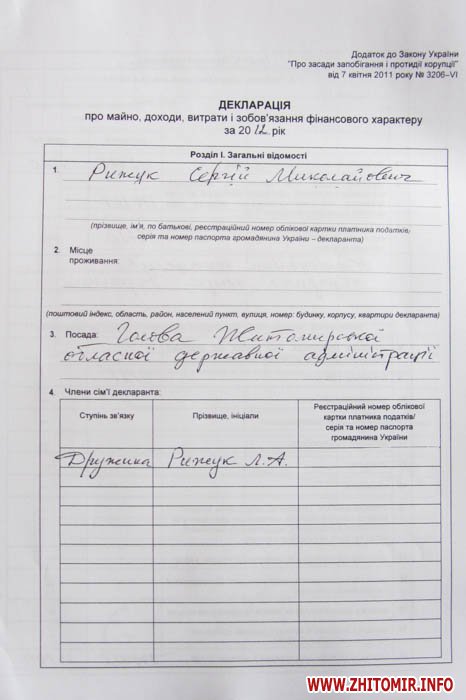 Додаток до Закону України
"Про засади запобігання і протидії корупції"
від 7 квітня 2011 року № 3206–VI
ДЕКЛАРАЦІЯ
про майно, доходи, витрати і зобов'язання фінансового характеру
за 2012 рік
Розділ І. Загальні відомості
1. Рижук Сергій Миколайович
(прізвище, ім'я, по батькові, реєстраційний номер облікової картки платника податків/
серія та номер паспорта громадянина України – декларанта)
2. Місце
проживання:
(поштовий індекс, область, район, населений пункт, вулиця, номер: будинку, корпусу, квартири декларанта)
3. Посада: Голова Житомирської
обласної державної адміністрації
4. Члени сім'ї декларанта:
Ступінь зв'язку Прізвище, ініціали Реєстраційний номер облікової
картки платника податків/
серія та номер паспорта
громадянина України
Дружина Рижук Л.А.
WWW.ZHITOMIR.INFO